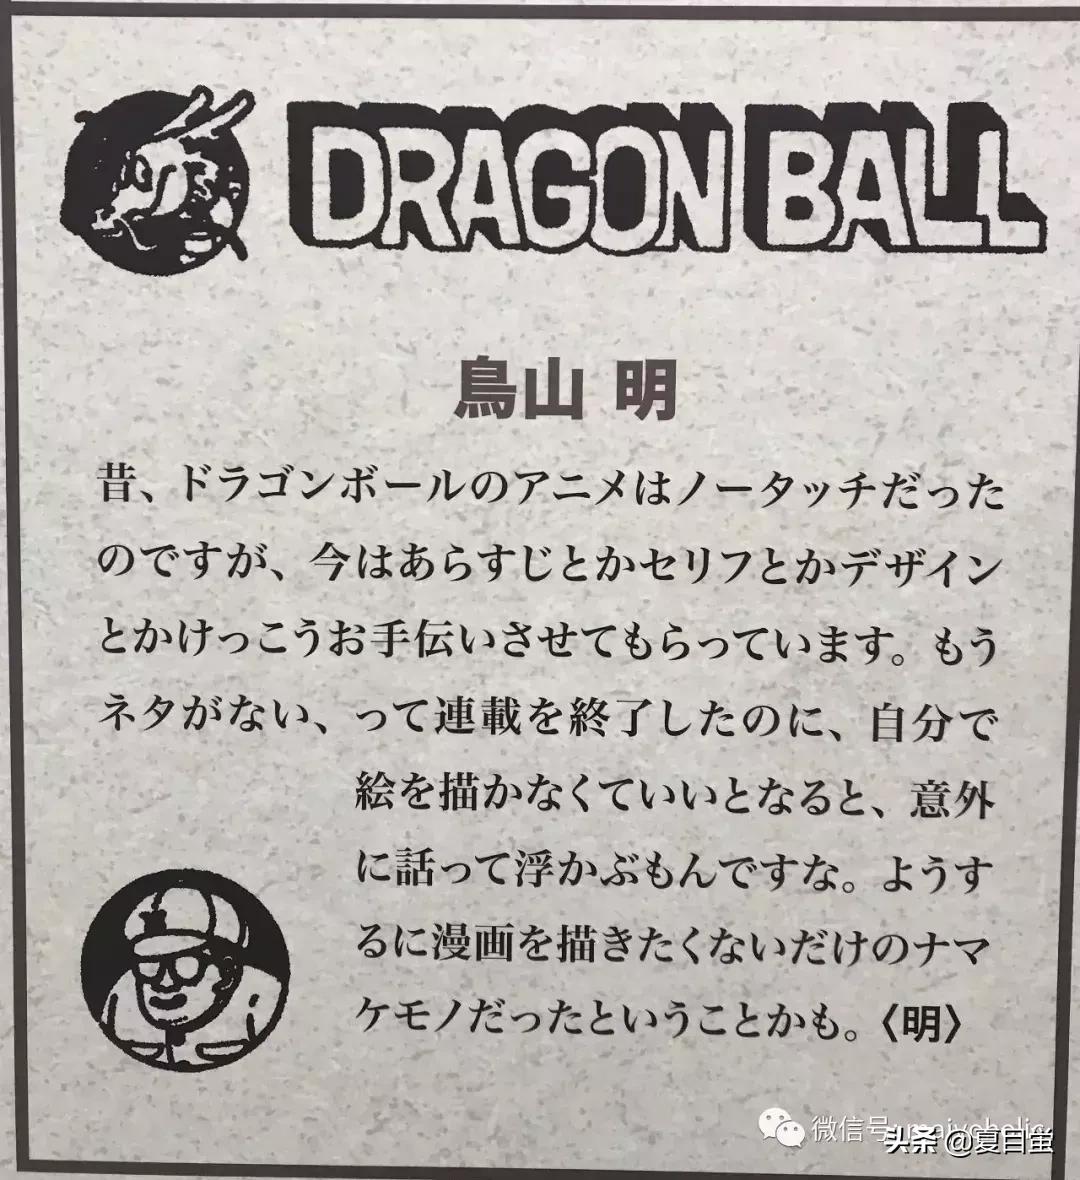 DRAGON BALL
鳥山 明
昔、ドラゴンボールのアニメはノータッチだった
のですが、今はあらすじとかセリフとかデザイン
とかけっこうお手伝いさせてもらっています。もう
ネタがない、って連載を終了したのに、自分で
絵を描かなくていいとなると、意外
に話って浮かぶもんですな。ようす
るに漫画を描きたくないだけのナマ
ケモノだったということかも。〈明〉
微信号:
头条 @夏目萤